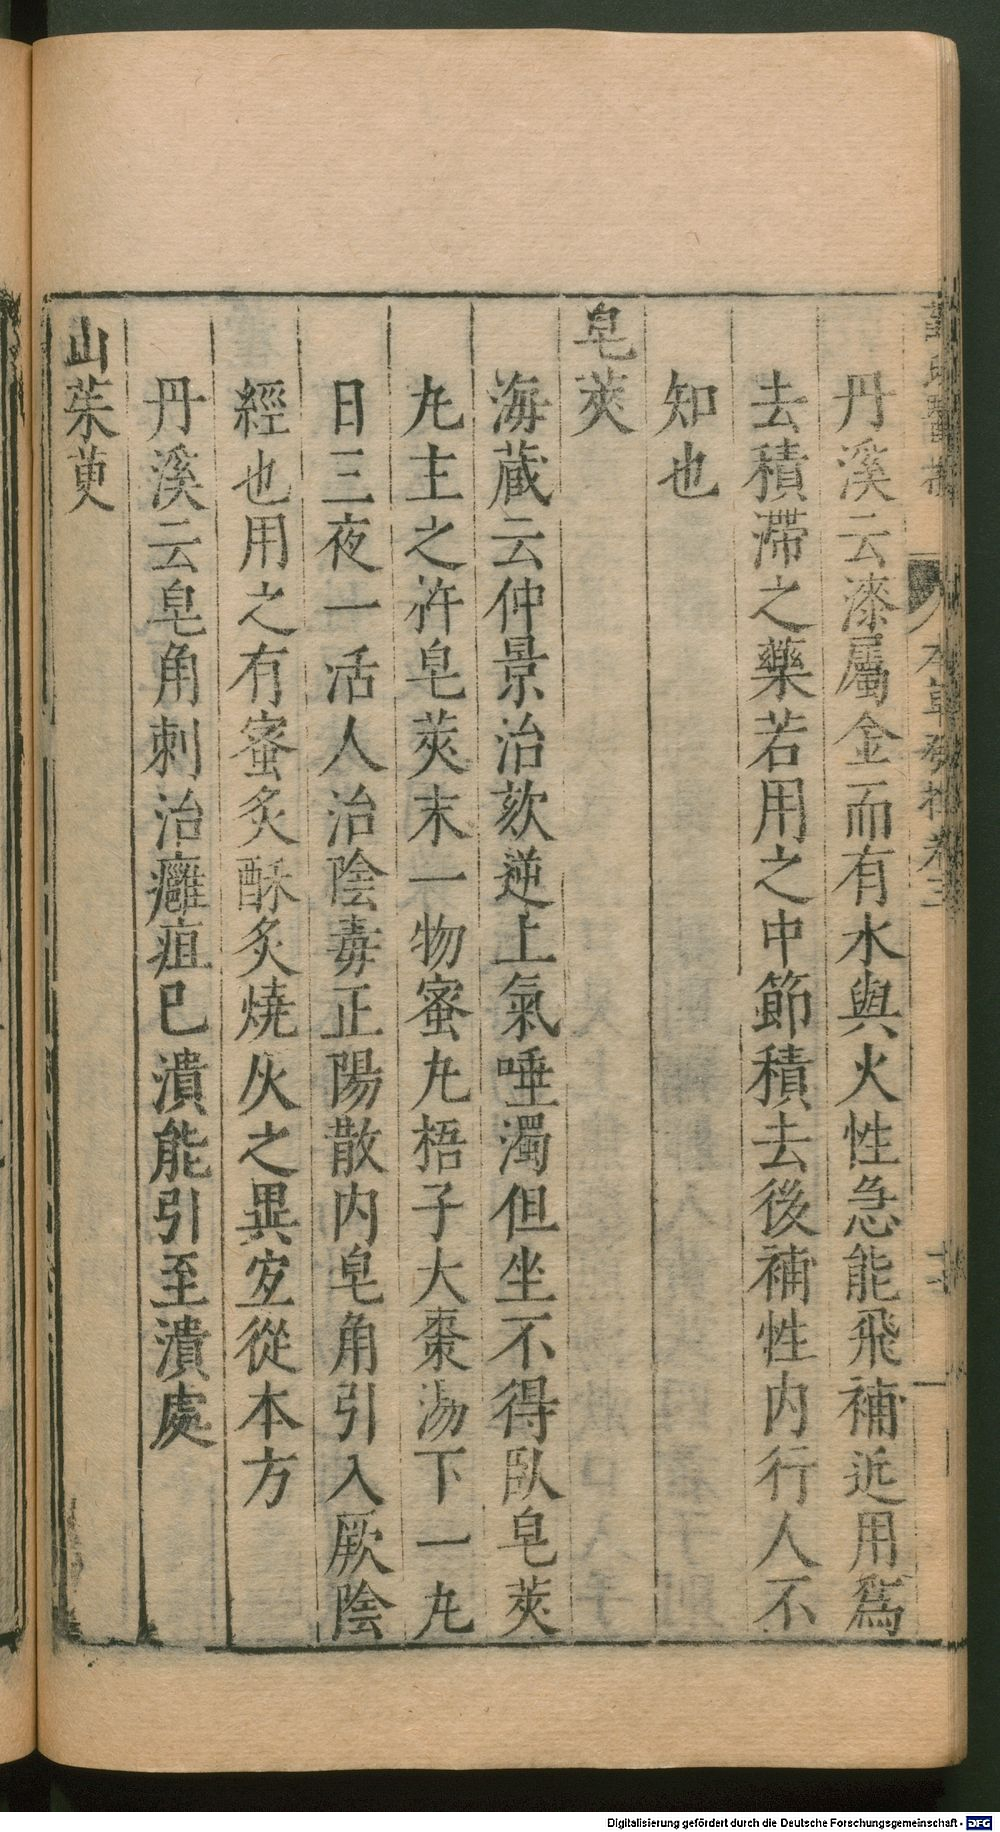 丹溪云漆屬金而有水與火性急能飛補近用爲
去積滯之藥若用之中節積去後補性内行人不
知也
皂莢
海蔵云仲景治欬逆上氣唾濁但坐不得臥皂莢
丸主之杵皂莢末一物蜜丸梧子大棗湯下一丸
日三夜一活人治陰毒正陽散内皂角引入厥陰
經也用之有蜜炙酥炙燒灰之異宜從本方
丹溪云皂角刺治癰疽已潰能引至潰處
山茱萸
Digitalisierung gefördert durch die Deutsche Forschungsgemeinschaft - DFG